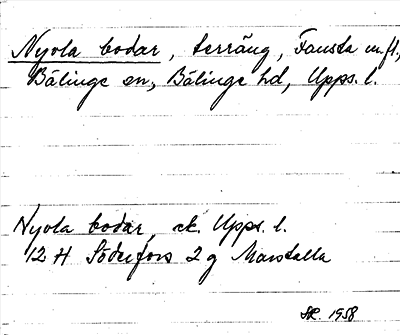 Nyola bodar, terräng, Fansta m.fl.,
Bälinge sn, Bälinge hd, Upps. l.
Nyola bodar, ek. Upps. l.
12 H Söderfors 2 g Marstalla
1958